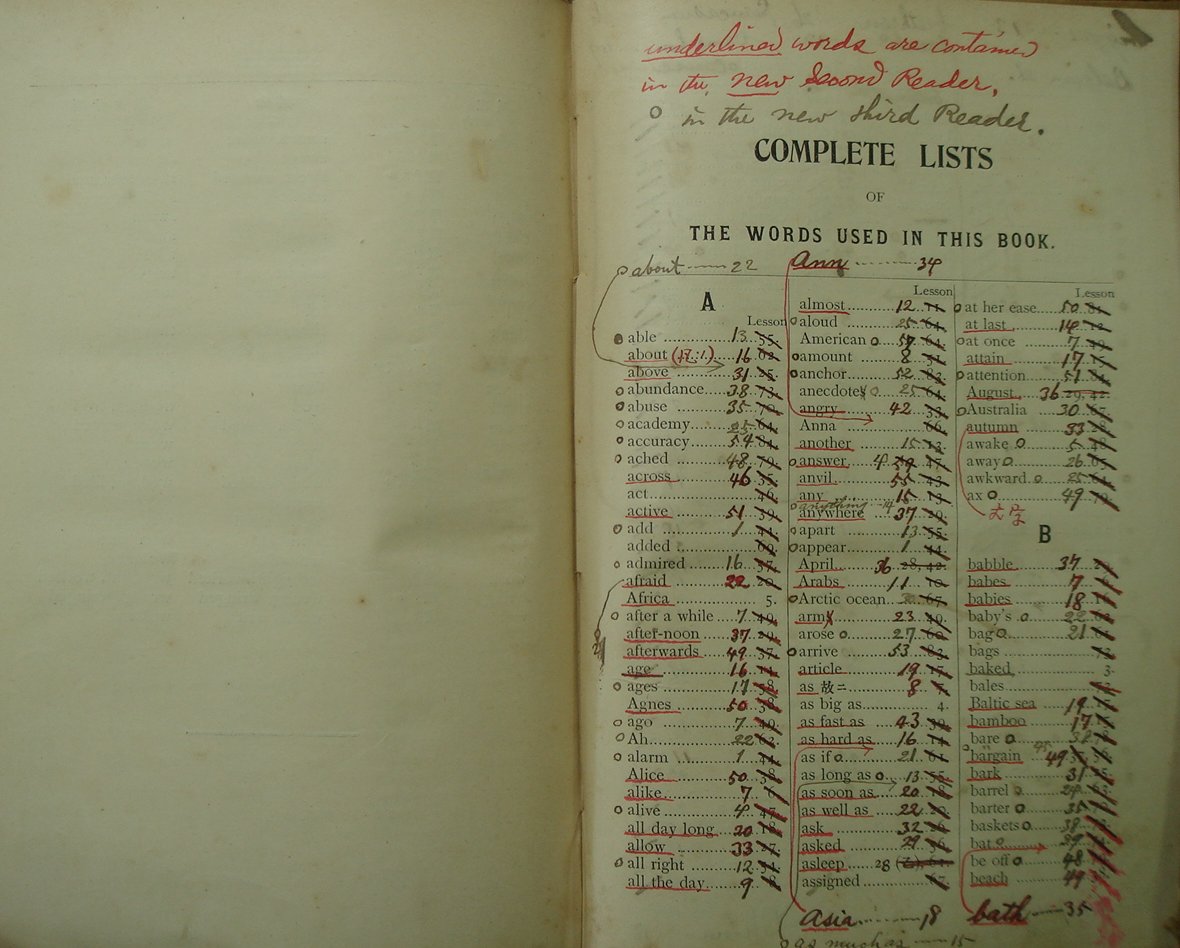 underlined words are contained
in the new Second Reader.
o in the new third Reader.
COMPLETE LISTS
OF
THE WORDS USED IN THIS BOOK.
about 22
A
Lesson
able 13
about 16
above 31
abundance 38
abuse 35
academy
accuracy 54
ached 48
across 46
act
active 51
add 1
added
admired 16
afraid 22
Africa 5.
after a while 7
after-noon 37
afterwards 49
age 16
ages 17
Agnes 50
ago 7
Ah 22
alarm 1
Alice 50
alike 7
alive 4
all day long 20
allow 33
all right 12
all the day 9
Ann 34
Lesson
almost 12
aloud 25
American
amount 8
anchor 52
anecdotes 25
angry 42
Anna
another 15
answer 4
anvil 55
any 15
anything 14
anywhere 37
apart 13
appear 1
April 36 28, 42.
Arabs 11
Arctic ocean
army 23
arose 27
arrive 53
article 19
as 故ニ 8
as big as 4.
as fast as 43
as hard as 16
as if 21
as long as 13
as soon as 20
as well as 22
ask 32
asked 29
asleep 28
assigned
Asia 18
as much as 15
Lesson
at her ease 50
at last 14
at once 7
attain 17
attention 51
August 36 29, 42.
Australia 30
autumn 33
awake 5
away 26
awkward 25
ax 49
B
babble 37
babes 7
babies 18
baby's 22
bag 21
bags
baked 3.
bales
Baltic sea 19
bamboo 17
bare
bargain 49
bark 31
barrel
barter 35
baskets 38
bat
be off 48
beach 49
bath 35